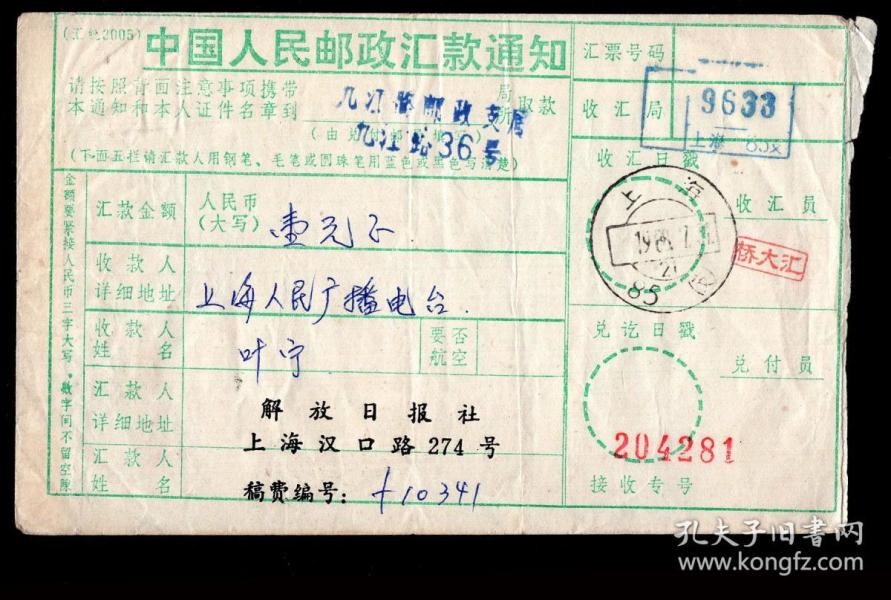 (汇建2005)
中国人民邮政汇款通知
请按照背面注意事项携带
本通知和本人证件名章到
局
所
取款
九江路邮政支局
(由兑付邮局填写)
九江路36号
(下面五栏请汇款人用钢笔、毛笔或圆珠笔用蓝色或黑色写清楚)
金额要紧接人民币三字大写,数字间不留空隙
汇款金额
人民币
(大写)
壹元正
收款人
详细地址
上海人民广播电台.
收款人
姓名
叶宁
要否
航空
汇款人
详细地址
解放日报社
上海汉口路274号
汇款人
姓名
稿费编号:
十10341
汇票号码
收汇局
9633
上海
85支
收汇日戳
收汇员
上海
85
桥大汇
兑讫日戳
兑付员
204281
接收专号
孔夫子旧书网
www.kongfz.com